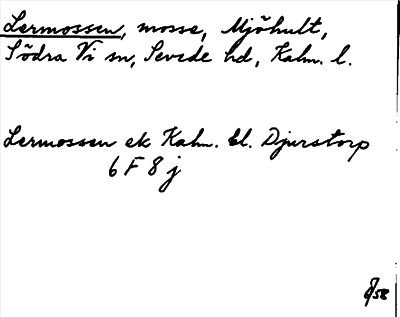 Lermossen, mosse, Mjöhult,
Södra Vi sn, Sevede hd, Kalm. l.
Lermossen ek Kalm. bl. Djurstorp
6 F 8 j